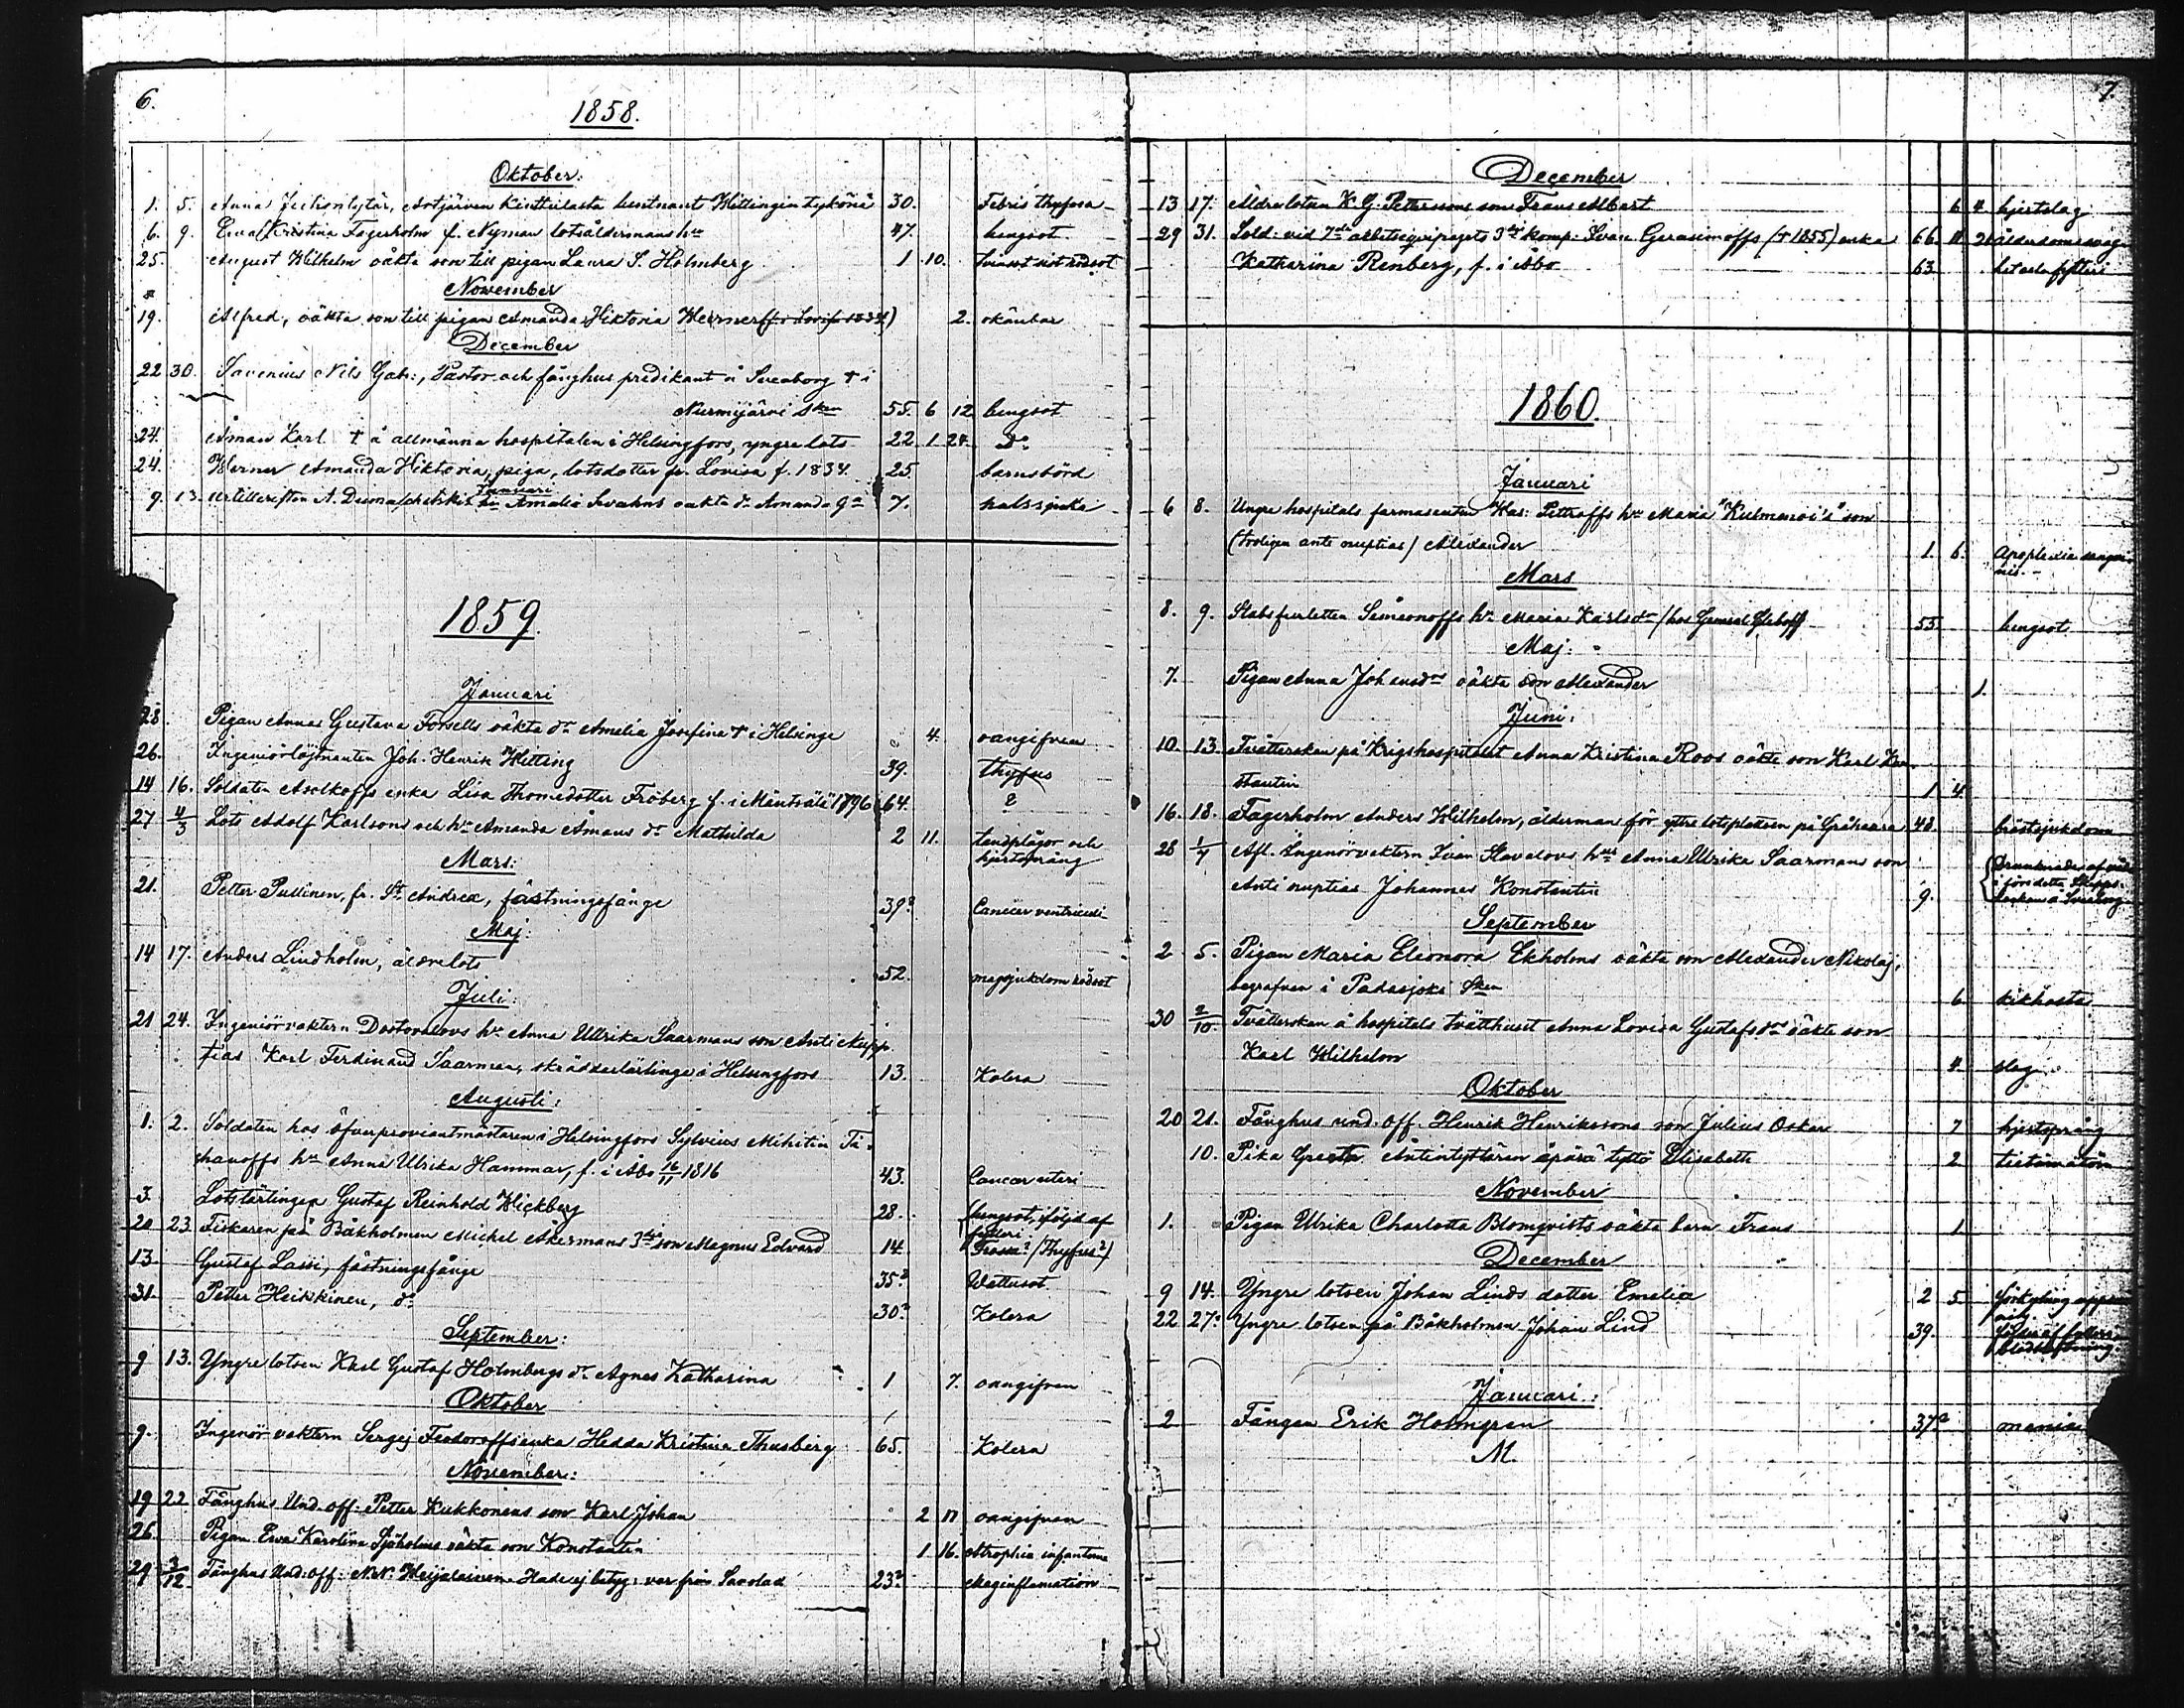 6.
1858.
Oktober:
1. 5. Anna Artjärven 30. Febris thyfosa
6. 9. Eva Kristina Fagerholm f. Nyman lotsåldermans hu 47. lungsot
25. August Wilhelm oäkta son till pigan Laura S. Holmberg 1 10. rödsot
November
19. Alfred, oäkta son till pigan Amanda Wiktoria Werner 2. okänbar
December
22 30. Savenius Nils Gab:, Pastor och fånghus predikant å Sveaborg † i
Nurmijärvi skn 55. 6 12 lungsot
24. Åman Karl † å allmänna hospitalen i Helsingfors, yngre lots 22 1 24. Do
24. Werner Amanda Wiktoria, piga, lotsdotter fr. Lovisa f. 1834. 25 barnsbörd
Januari
9. 13. Artilleristen A. hu Amalia Svahns oäkta dr Amanda 7. halssjuka
1859.
Januari
28. Pigan Annas Gustava Forsells oäkta dr Amelia Josefina † i Helsinge 4. oangifven
26. Ingeniörlöjtnanten Joh. Henrik Witting 39. thyfus
14 16. Soldaten enka Lisa Thomedotter Fröberg f. i Mäntsälä 64. ?
27 4/3 Lots Adolf Karlsons och hu Amanda Åmans dr Mathilda 2 11. tandplågor och
hjertsprång
Mars:
21. Petter Pullinen, fr. St. Andrea, fästningsfånge 39? Cancer ventriculi
Maj:
14 17. Anders Lindholm, äldre lots 52. magsjukdom rödsot
Juli:
21 24. Ingeniörvaktern hu Anna Ullrika Saarmans son Anti nupp
tias Karl Ferdinand Saarman, skräddarlärlinge i Helsingfors 13. Kolera
Augusti:
1. 2. Soldaten hos öfverproviantmästaren i Helsingfors Sylvius Ti-
hanoffs hu Anna Ulrika Hammar, f. i Åbo 16/11 1816 43. Cancer uteri
3. Lotslärlingen Gustaf Reinhold Wickberg 28. lungsot, följd af
fylleri
20 23 Fiskaren på Båkholmen Michel Åkermans 3die son Magnus Edvard 14 Frossa? (Thyfus?)
13. Gustaf Lassi, fästningsfånge 35? Wattusot
31. Petter Heikkinen, do 30? Kolera
September:
9 13. Yngre lotsen Karl Gustaf Holmbergs dr Agnes Katharina 1 7. oangifven
Oktober
9. Ingenör vaktern Sergej Feodoroffs enka Hedda Kristina Thusberg 65. Kolera
November:
19 22 Fånghus Und. off. Petter Kukkonens son Karl Johan 2 17 oangifven
26. Pigan Eva Karolina Sjöholms oäkta son Konstantin 1 16. Atrophia infantum
29 3/12 Fånghus Und: off: N.N. Weijalainen. Hade ej betyg, var från Savolaks 23? Maginflamation
7.
December
13 17. Äldre lotsen K. G. Peterssons son Frans Albert 6 4 hjertslag
29 31. Sold: vid 7de arbetsequipagets 3die komp. Ivan Gerasimoffs († 1855) enka 66. 11 21 ålderdomssvag
Katharina Renberg, f. i Åbo 63.
1860.
Januari
6 8. Yngre hospitals farmaceuten Was: Pettroffs hu Maria "Kulmanoi's" son
(troligen ante nuptias) Alexander 1. 6. Apoplexia sangvi-
nis.
Mars
8. 9. Stabsfurletten Simeonoffs hu Maria Karlsdr (hos General Gleboff 55. lungsot
Maj:
7. Pigan Anna Johansdrs oäkta son Alexander 1.
Juni:
10. 13. Tvätterskan på Krigshospitalet Anna Kristina Roos oäkta son Karl Kon
stantin 1 4.
16. 18. Fagerholm Anders Wilhelm, ålderman för yttre lotsplatsen på Gråhara 48. bröstsjukdom
28 1/7 Afl. Ingenörvaktern Ivan hus Anna Ulrika Saarmans son
Anti nuptias Johannes Konstantin 9.
September
2 5. Pigan Maria Eleonora Ekholms oäkta son Alexander Nikolaj,
begrafven i Padasjoki Skn 6. kikhosta
30 2/10. Tvätterskan å hospitals tvätthuset Anna Lovisa Gustafsdrs oäkta son
Karl Wilhelm 4. slag
Oktober
20 21. Fånghus und. off. Henrik Henrikssons son Julius Oskar 7 hjertsprång
10. Pika Greeta Antintyttären äpärä tyttö Elisabeth 2 tietämätön
November
1. Pigan Ulrika Charlotta Blomqvists oäkta barn Frans 1
December
9 14. Yngre lotsen Johan Linds dotter Emelia 2 5.
22 27. Yngre lotsen på Båkholmen Johan Lind 39.
Januari:
2 Fången Erik Holmgren 37? mania
M.